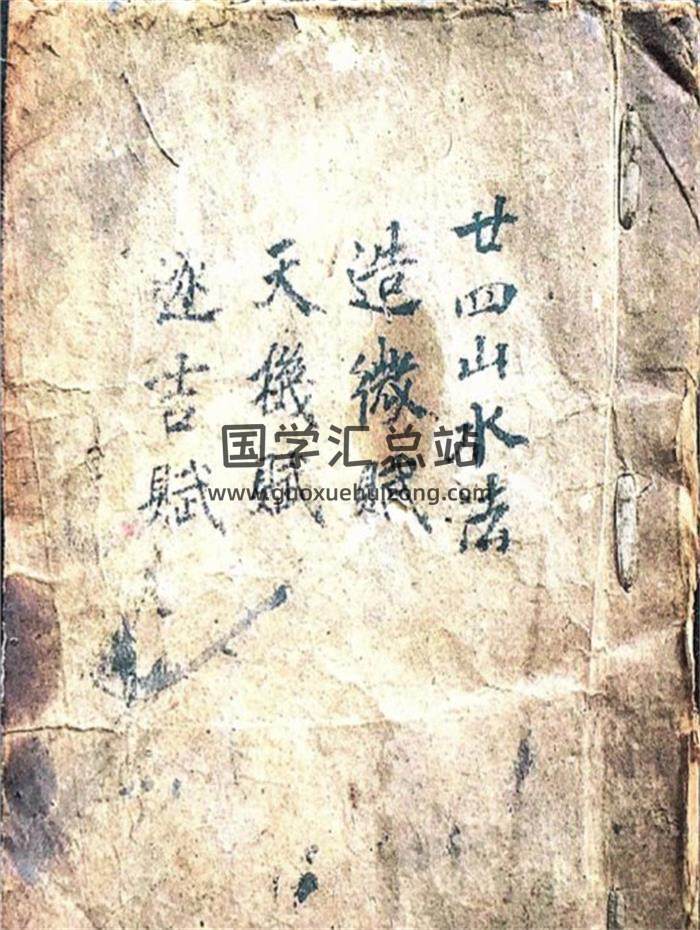 廿四山水法
造微賦
天機賦
逆吉賦
国学汇总站
www.guoxuehuizong.com